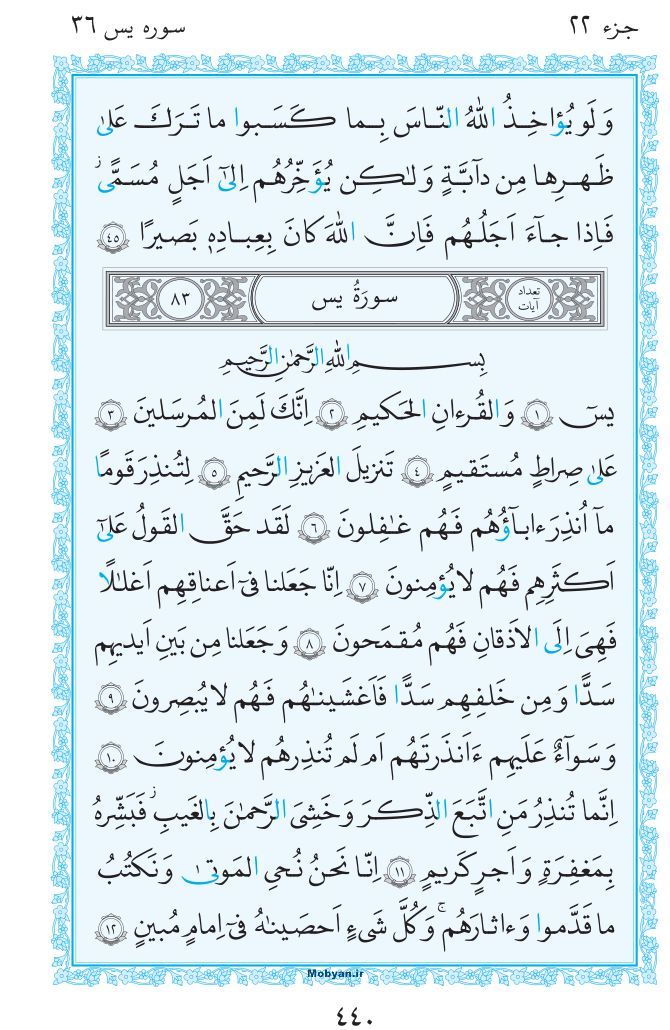 جزء ۲۲
سوره یس ۳۶
وَلَو يُؤاخِذُ اللّٰهُ النّاسَ بِما كَسَبوا ما تَرَكَ عَلىٰ
ظَهرِها مِن دآبَّةٍ وَلٰكِن يُؤَخِّرُهُم اِلىٰٓ اَجَلٍ مُسَمًّىۖ
فَاِذا جآءَ اَجَلُهُم فَاِنَّ اللّٰهَ كانَ بِعِبادِهٖ بَصيرًا ﴿٤٥﴾
تعداد آيات
سورَةُ يس
۸۳
بِسمِ اللّٰهِ الرَّحمٰنِ الرَّحيمِ
يسٓ ﴿١﴾ وَالقُرءانِ الحَكيمِ ﴿٢﴾ اِنَّكَ لَمِنَ المُرسَلينَ ﴿٣﴾
عَلىٰ صِراطٍ مُستَقيمٍ ﴿٤﴾ تَنزيلَ العَزيزِ الرَّحيمِ ﴿٥﴾ لِتُنذِرَ قَومًا
مآ اُنذِرَ ءابآؤُهُم فَهُم غٰفِلونَ ﴿٦﴾ لَقَد حَقَّ القَولُ عَلىٰٓ
اَكثَرِهِم فَهُم لا يُؤمِنونَ ﴿٧﴾ اِنّا جَعَلنا فىٓ اَعناقِهِم اَغلٰلًا
فَهِىَ اِلَى الاَذقانِ فَهُم مُقمَحونَ ﴿٨﴾ وَجَعَلنا مِن بَينِ اَيديهِم
سَدًّا وَمِن خَلفِهِم سَدًّا فَاَغشَينٰهُم فَهُم لا يُبصِرونَ ﴿٩﴾
وَسَوآءٌ عَلَيهِم ءَاَنذَرتَهُم اَم لَم تُنذِرهُم لا يُؤمِنونَ ﴿١٠﴾
اِنَّما تُنذِرُ مَنِ اتَّبَعَ الذِّكرَ وَخَشِىَ الرَّحمٰنَ بِالغَيبِۖ فَبَشِّرهُ
بِمَغفِرَةٍ وَاَجرٍ كَريمٍ ﴿١١﴾ اِنّا نَحنُ نُحىِ المَوتىٰ وَنَكتُبُ
ما قَدَّموا وَءاثارَهُمۚ وَكُلَّ شَىءٍ اَحصَينٰهُ فىٓ اِمامٍ مُبينٍ ﴿١٢﴾
Mobyan.ir
٤٤٠